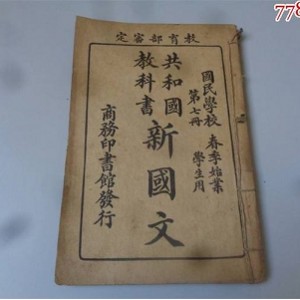 教育部審定
國民學校 春季始業
第七冊 學生用
共和國
教科書
新國文
商務印書館發行
778